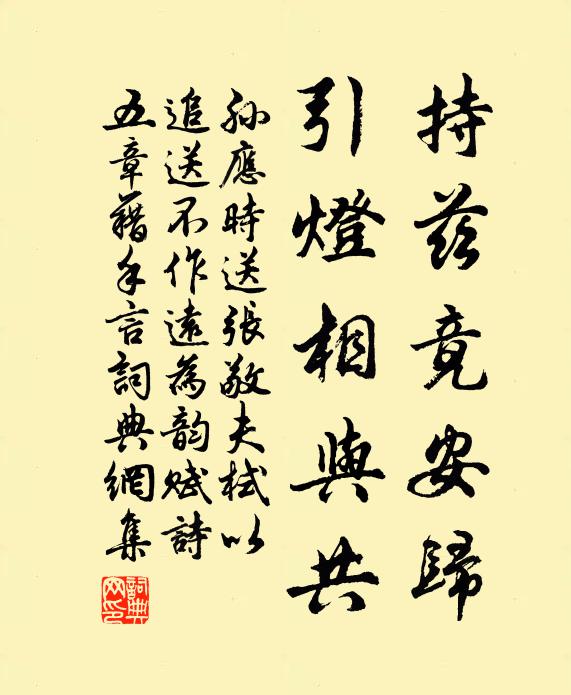 持茲竟安歸
引燈相與共
孫應時送張敬夫栻以
追送不作遠為韵賦詩
五章藉手言詞典網集
詞典網印